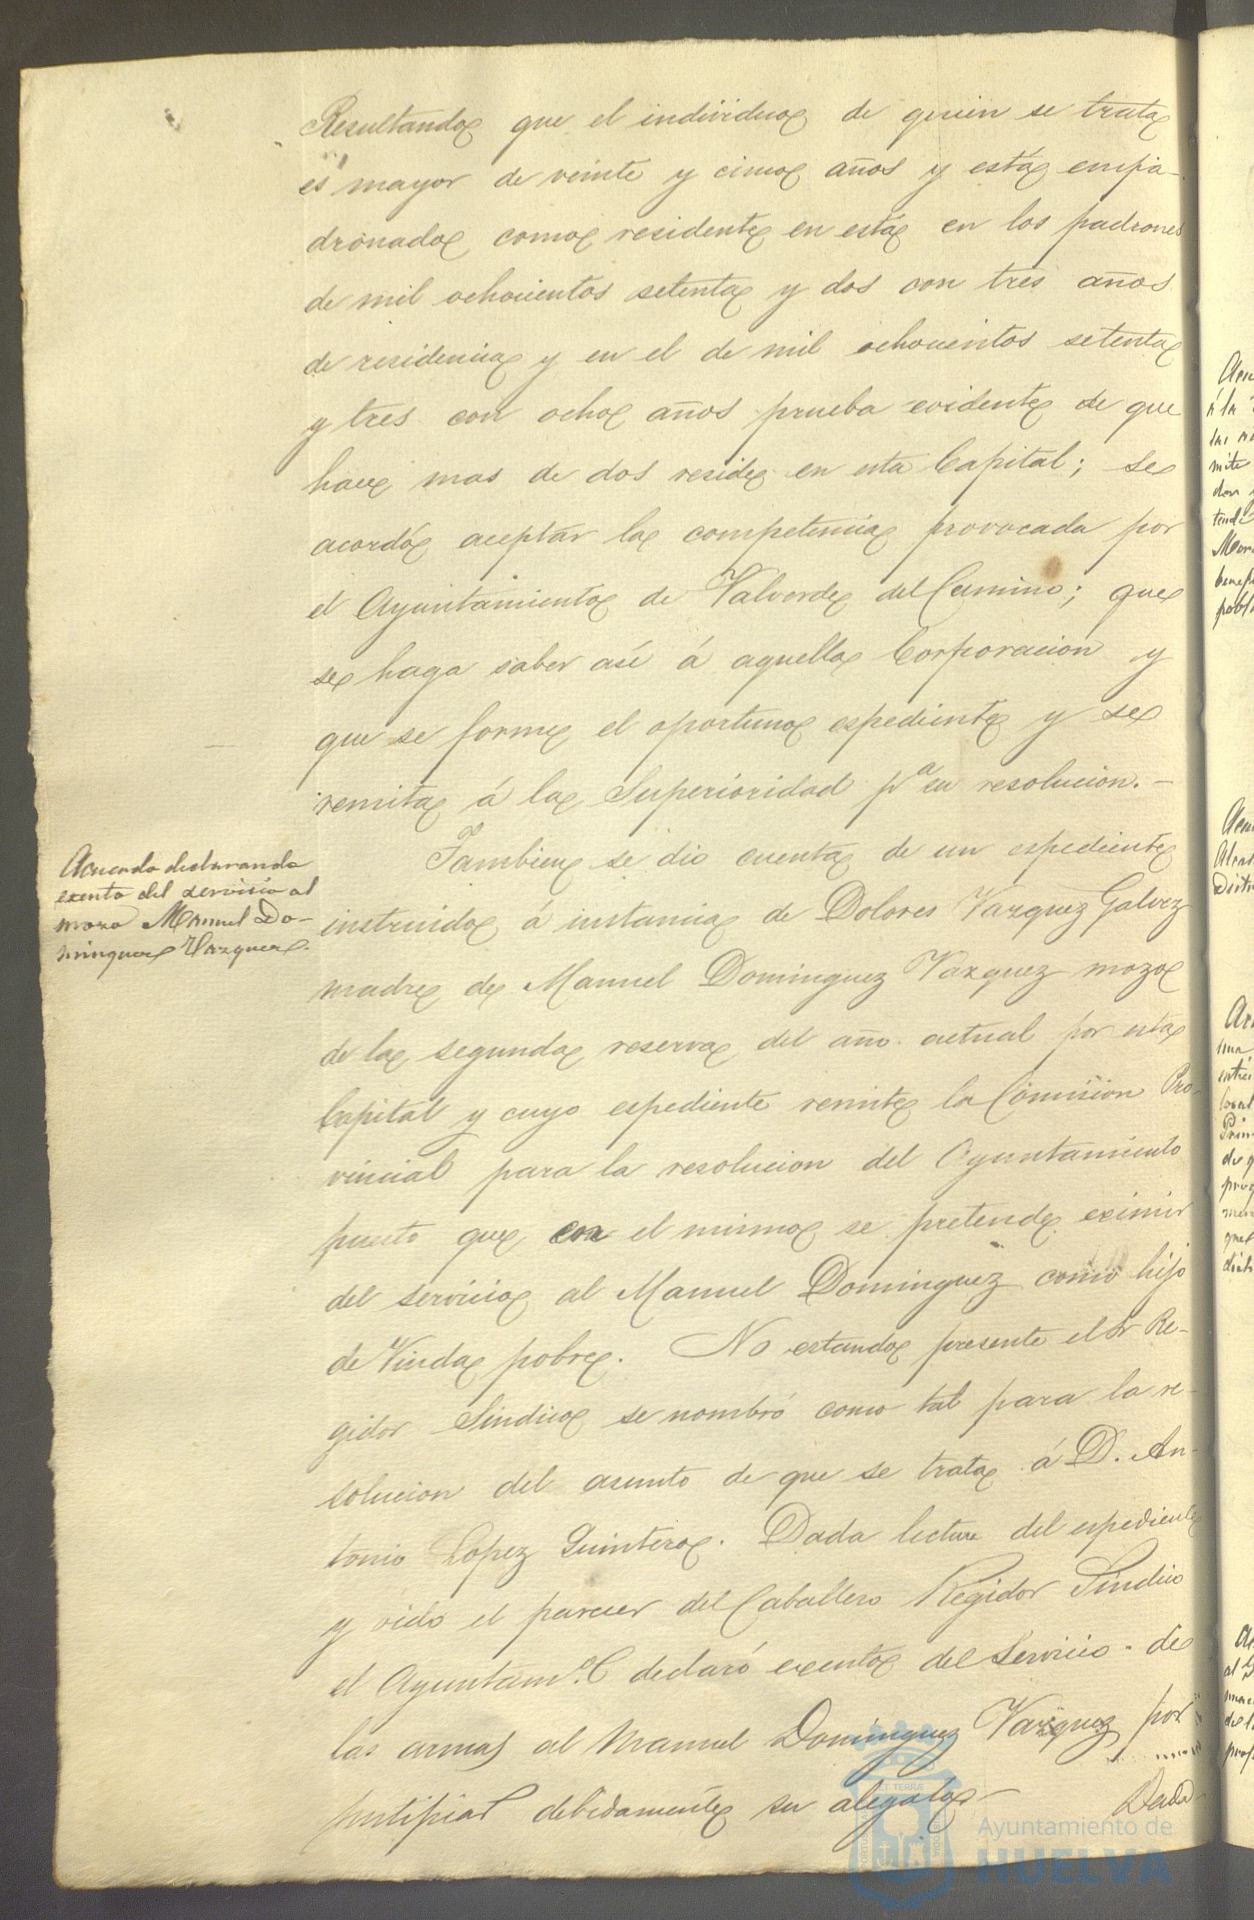 Resultando que el individuo de quien se trata
es mayor de veinte y cinco años y está empa-
dronado como residente en esta en los padrones
de mil ochocientos setenta y dos con tres años
de residencia y en el de mil ochocientos setenta
y tres con ocho años prueba evidente de que
hace mas de dos reside en esta Capital; se
acordó aceptar la competencia provocada por
el Ayuntamiento de Valverde del Camino; que
se haga saber asi á aquella Corporacion y
que se forme el oportuno espediente y se
remita á la Superioridad pª su resolucion.-
Acuerdo declarando
exento del servicio al
mozo Manuel Do-
minguez Vazquez.
Tambien se dio cuenta de un espediente
instruido á instancia de Dolores Vazquez Galvez
madre de Manuel Dominguez Vazquez mozo
de la segunda reserva del año actual por esta
Capital y cuyo espediente remite la Comision Pro-
vincial para la resolucion del Ayuntamiento
puesto que con el mismo se pretende eximir
del servicio al Manuel Dominguez como hijo
de Viuda pobre. No estando presente el Sr Re-
gidor Sindico se nombró como tal para la re-
solucion del asunto de que se trata á D. An-
tonio Lopez Quintero. Dada lectura del espediente
y oido el parecer del Caballero Regidor Sindico
el Ayuntamº declaró exento del servicio de
las armas al Manuel Dominguez Vazquez por
justificar debidamente su alegato-
Dada
Ayuntamiento de
HUELVA